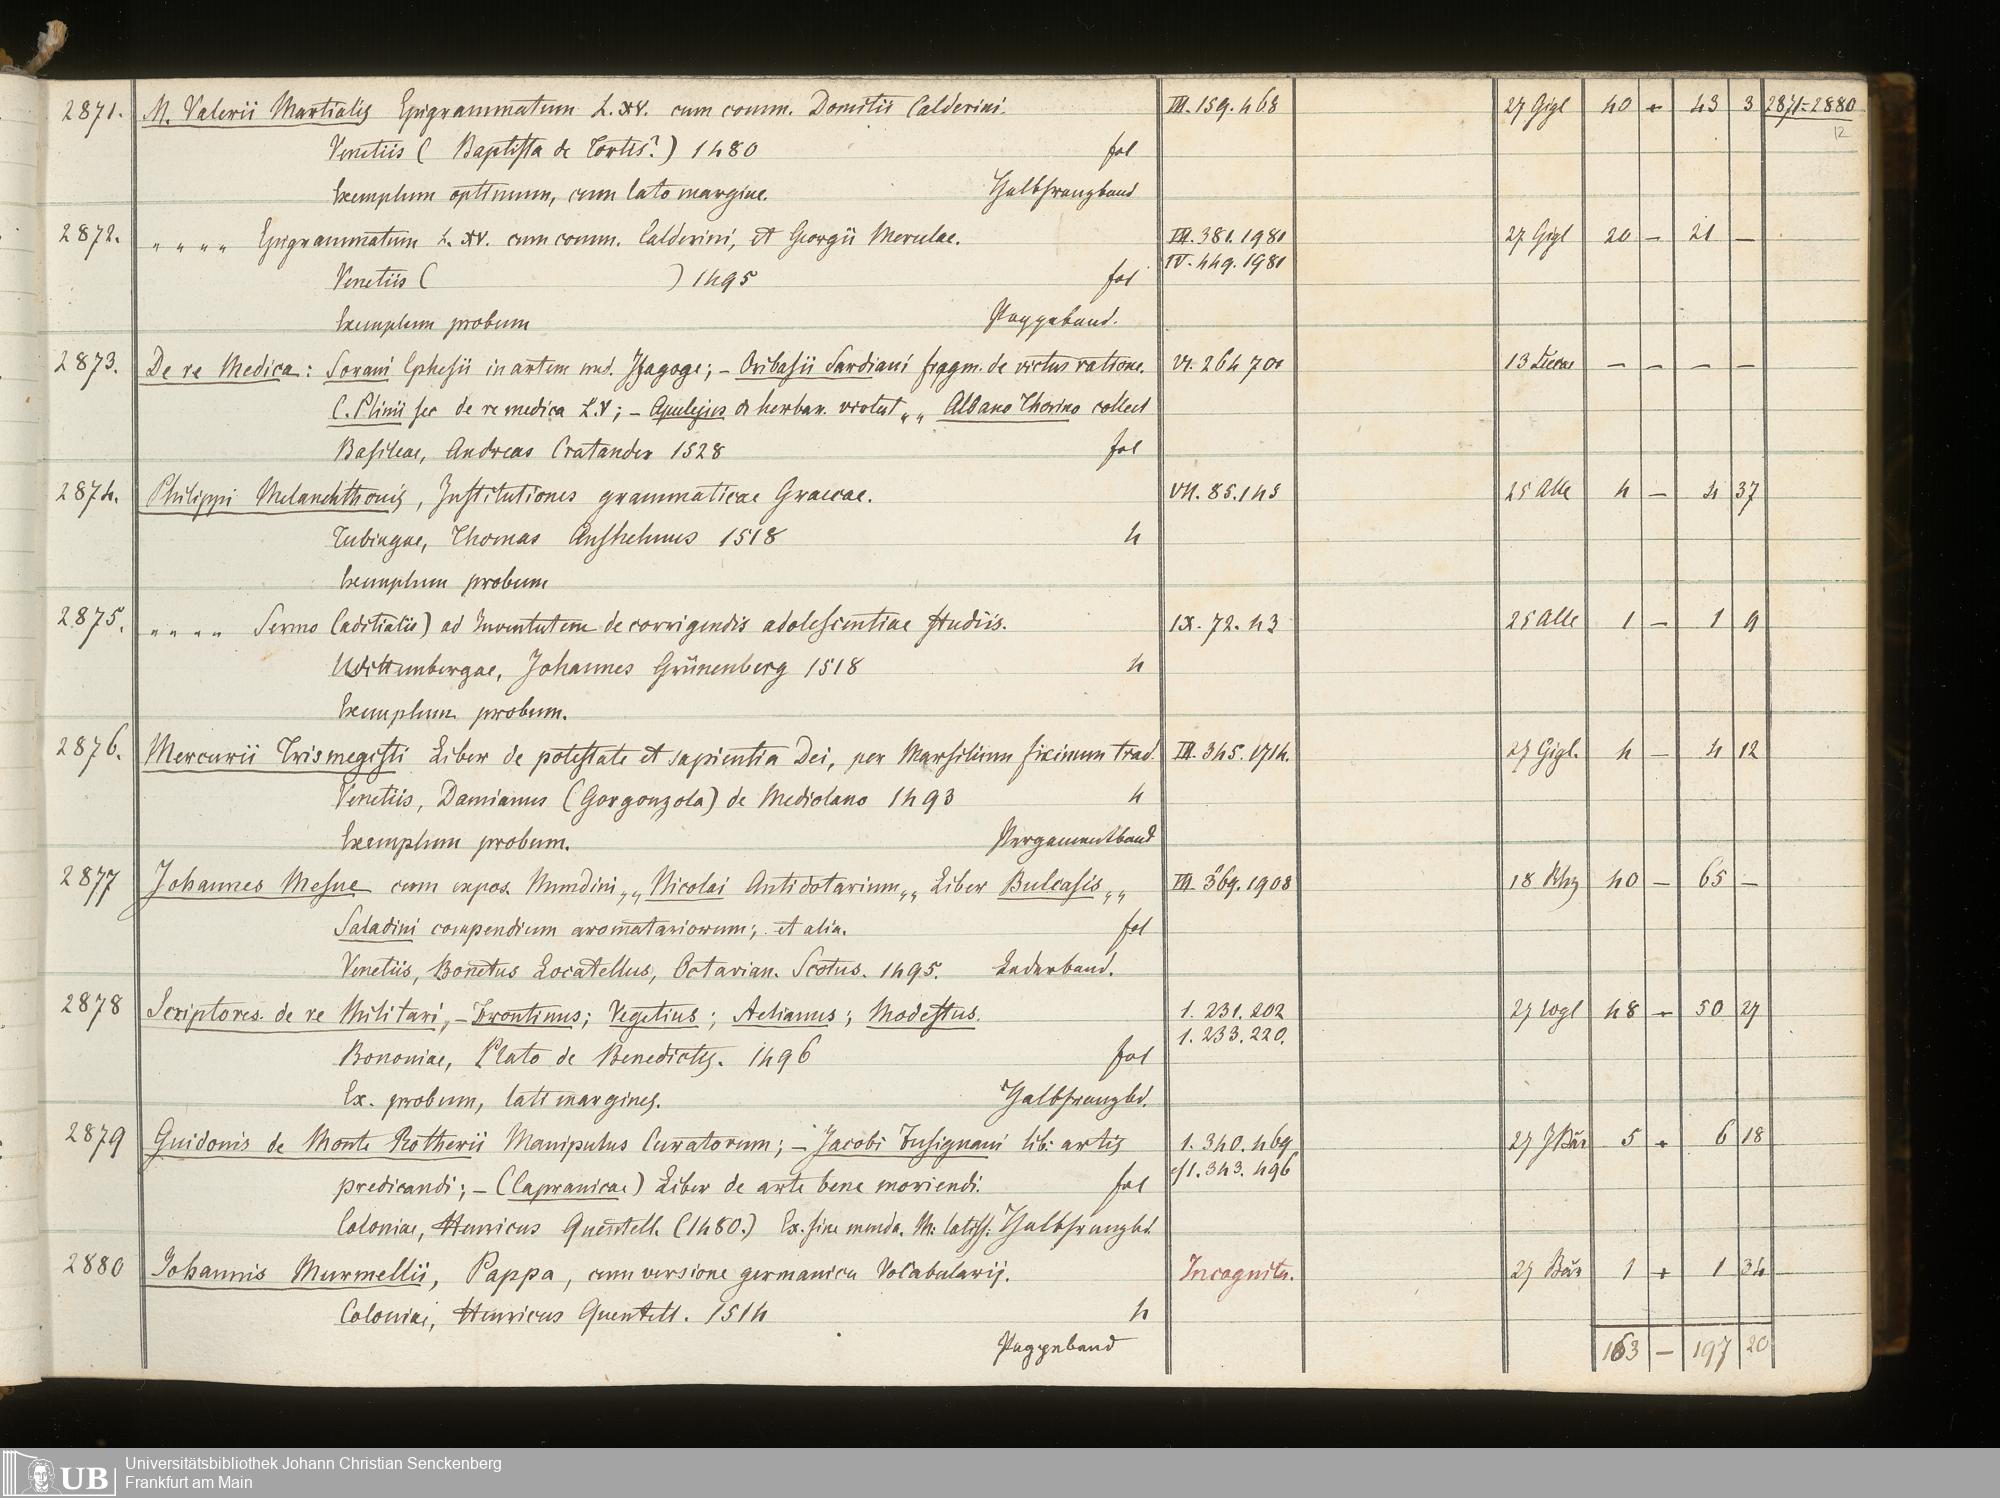 2871. M. Valerii Martialis Epigrammatum L. XV. cum comm. Domitii Calderini. III. 159. 468 27 Gigl 40 - 43 3 2871-2880
12
Venetiis ( Baptista de Tortis? ) 1480 fol
Exemplum optimum, cum lato margine. Halbfranzband
2872. " " " " Epigrammatum L. XV. cum comm. Calderini, et Georgii Merulae. III. 381. 1981 27 Gigl 20 - 21 -
IV. 449. 1981
Venetiis ( ) 1495 fol
Exemplum probum Pappeband.
2873. De re Medica: Sorani Ephesii in artem med. Isagoge; - Oribasii Sardiani fragm. de victus ratione. VI. 264 701 13 - - - -
C. Plinii sec de re medica L.V; - Apulejus de herbar. virtut " " Albano Thorino collect
Basileae, Andreas Cratander 1528 fol
2874. Philippi Melanchthonis, Institutiones grammaticae Graecae. VII. 85. 143 25 Alle 4 - 4 37
Tubingae, Thomas Anshelmus 1518 4
Exemplum probum
2875. " " " " Sermo (aditialis) ad Inventutem de corrigendis adolescentiae studiis. IX. 72. 43 25 Alle 1 - 1 9
Wittembergae, Johannes Grünenberg 1518 4
Exemplum probum.
2876. Mercurii Trismegisti Liber de potestate et sapientia Dei, per Marsilium ficinum trad. III. 345. 1714. 27 Gigl. 4 - 4 12
Venetiis, Damianus (Gorgonzola) de Mediolano 1493 4
Exemplum probum. Pergamentband
2877 Johannes Mesue cum expos. Mundini, " Nicolai Antidotarium " " Liber Bulcasis " " III. 369. 1908 18 Rhz 40 - 65 -
Saladini compendium aromatariorum; et alia. fol
Venetiis, Bonetus Locatellus, Octavian. Scotus. 1495. Lederband.
2878 Scriptores de re Militari, - Frontinus; Vegetius; Aelianus; Modestus. 1. 231. 202 27 Wogl 48 - 50 27
1. 233. 220.
Bononiae, Plato de Benedictis. 1496 fol
Ex. probum, lati margines. Halbfranzbd.
2879 Guidonis de Monte Rotherii Manipulus Curatorum; - Jacobi Fusignani lib. artis 1. 340. 469 27 JBär 5 - 6 18
predicandi; - (Capranicae) Liber de arte bene moriendi. fol cf 1. 343. 496
Coloniae, Henricus Quentell. (1480.) Ex. sine menda. M. latiss. Halbfranzbd.
2880 Johannis Murmellii, Pappa, cum versione germanica Vocabularij. Incognitu. 27 Bär 1 - 1 34
Coloniae, Henricus Quentell. 1514 4
Pappeband 163 - 197 20
UB
Universitätsbibliothek Johann Christian Senckenberg
Frankfurt am Main